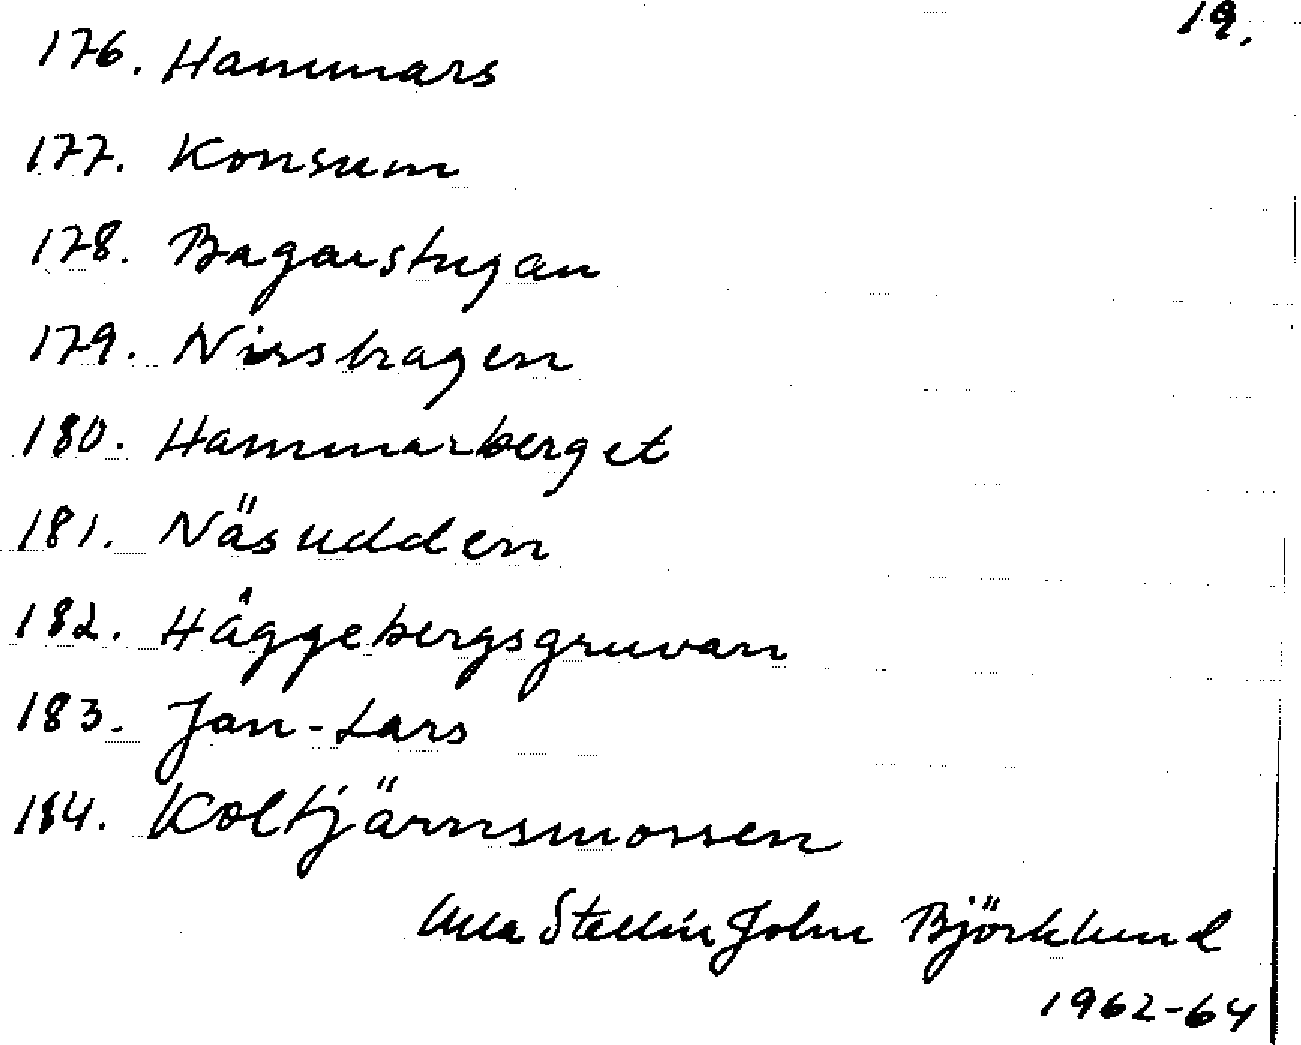 19.
176. Hammars
177. Konsum
178. Bagarstugan
179. Nisshagen
180. Hammarberget
181. Näsudden
182. Häggebergsgruvan
183. Jan-Lars
184. Koltjärnsmossen
Ulla Stellin John Björklund
1962-64